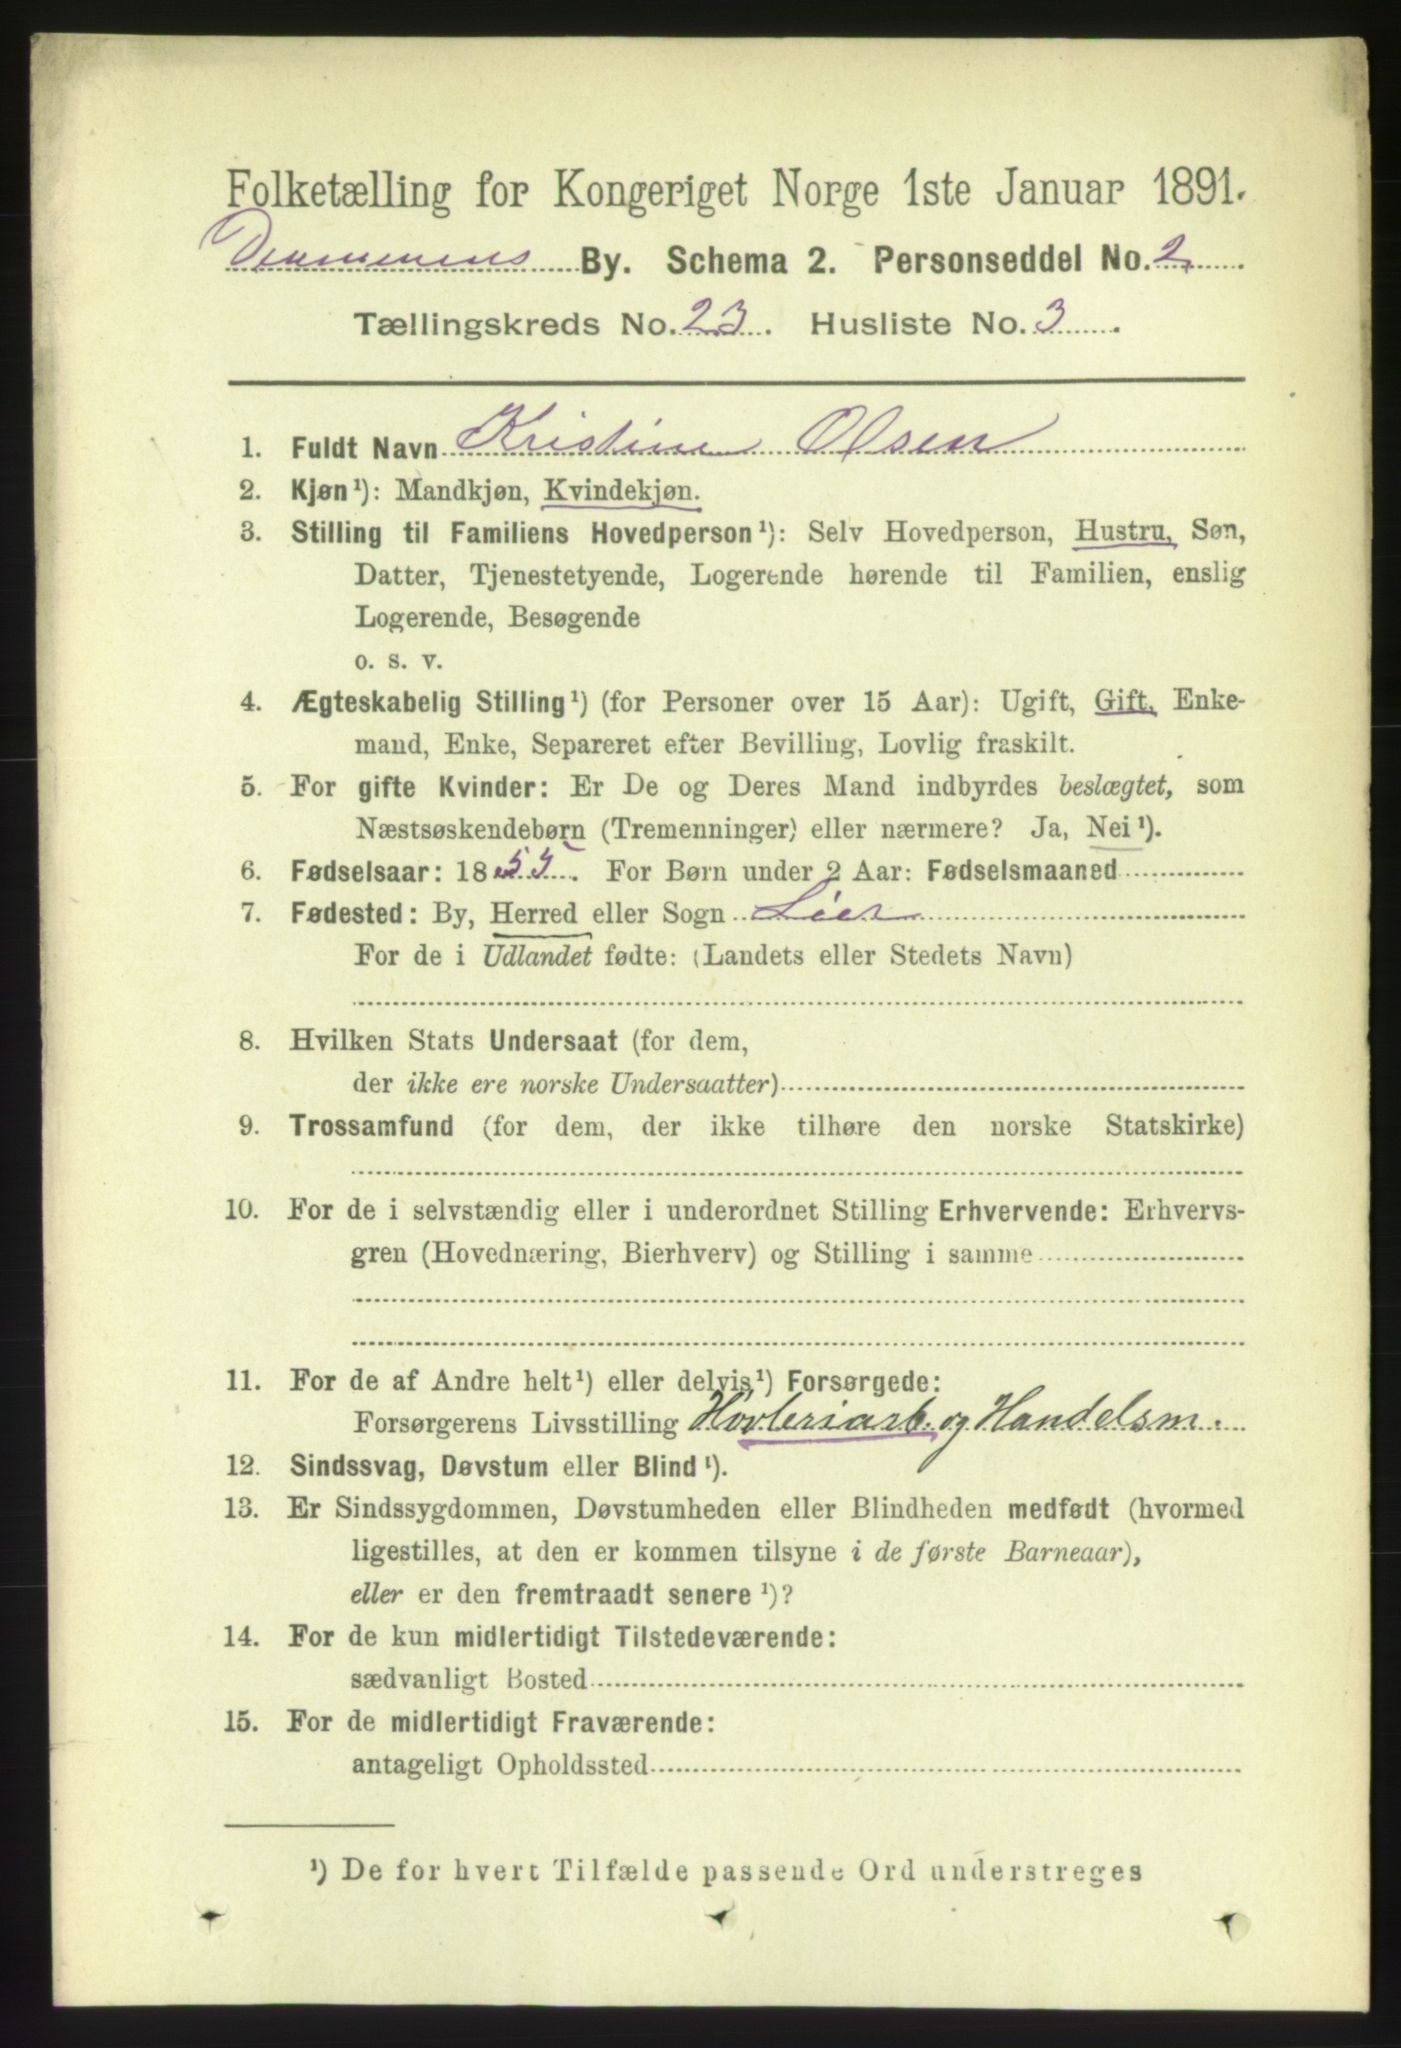 Folketælling for Kongeriget Norge 1ste Januar 1891.
Drammens By. Schema 2. Personseddel No. 2
Tællingskreds No. 23. Husliste No. 3.
1. Fuldt Navn Kristine Olsen
2. Kjøn¹): Mandkjøn, Kvindekjøn.
3. Stilling til Familiens Hovedperson¹): Selv Hovedperson, Hustru, Søn,
Datter, Tjenestetyende, Logerende hørende til Familien, enslig
Logerende, Besøgende
o. s. v.
4. Ægteskabelig Stilling¹) (for Personer over 15 Aar): Ugift, Gift, Enke-
mand, Enke, Separeret efter Bevilling, Lovlig fraskilt.
5. For gifte Kvinder: Er De og Deres Mand indbyrdes beslægtet, som
Næstsøskendebørn (Tremenninger) eller nærmere? Ja, Nei¹).
6. Fødselsaar: 18 . For Børn under 2 Aar: Fødselsmaaned
7. Fødested: By, Herred eller Sogn Lier
For de i Udlandet fødte: (Landets eller Stedets Navn)
8. Hvilken Stats Undersaat (for dem,
der ikke ere norske Undersaatter)
9. Trossamfund (for dem, der ikke tilhøre den norske Statskirke)
10. For de i selvstændig eller i underordnet Stilling Erhvervende: Erhvervs-
gren (Hovednæring, Bierhverv) og Stilling i samme
11. For de af Andre helt¹) eller delvis¹) Forsørgede:
Forsørgerens Livsstilling Hövleriarb. og Handelsm.
12. Sindssvag, Døvstum eller Blind¹).
13. Er Sindssygdommen, Døvstumheden eller Blindheden medfødt (hvormed
ligestilles, at den er kommen tilsyne i de første Barneaar),
eller er den fremtraadt senere¹)?
14. For de kun midlertidigt Tilstedeværende:
sædvanligt Bosted
15. For de midlertidigt Fraværende:
antageligt Opholdssted
¹) De for hvert Tilfælde passende Ord understreges